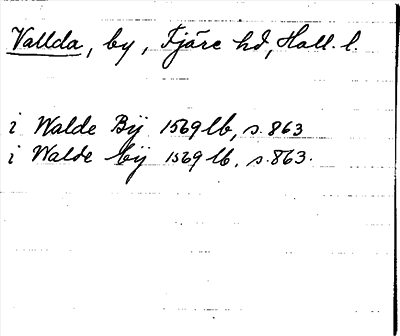 Vallda, by, Fjäre hd, Hall. l.
i Walde Bÿ 1569 lb, s. 863
i Walde bÿ 1569 lb. s. 863.